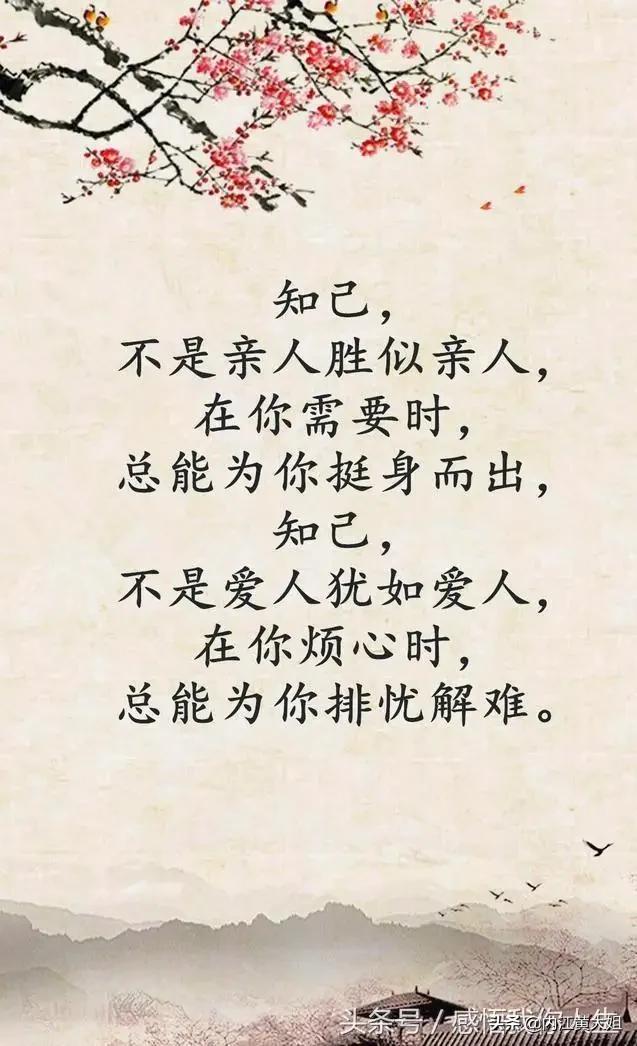 知己，
不是亲人胜似亲人，
在你需要时，
总能为你挺身而出，
知己，
不是爱人犹如爱人，
在你烦心时，
总能为你排忧解难。
头条号/感悟我你人生
头条@内江黄大姐